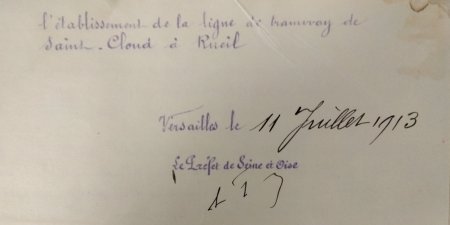 l'établissement de la ligne de tramway de
Saint-Cloud à Rueil
Versailles le 11 Juillet 1913
Le Préfet de Seine et Oise